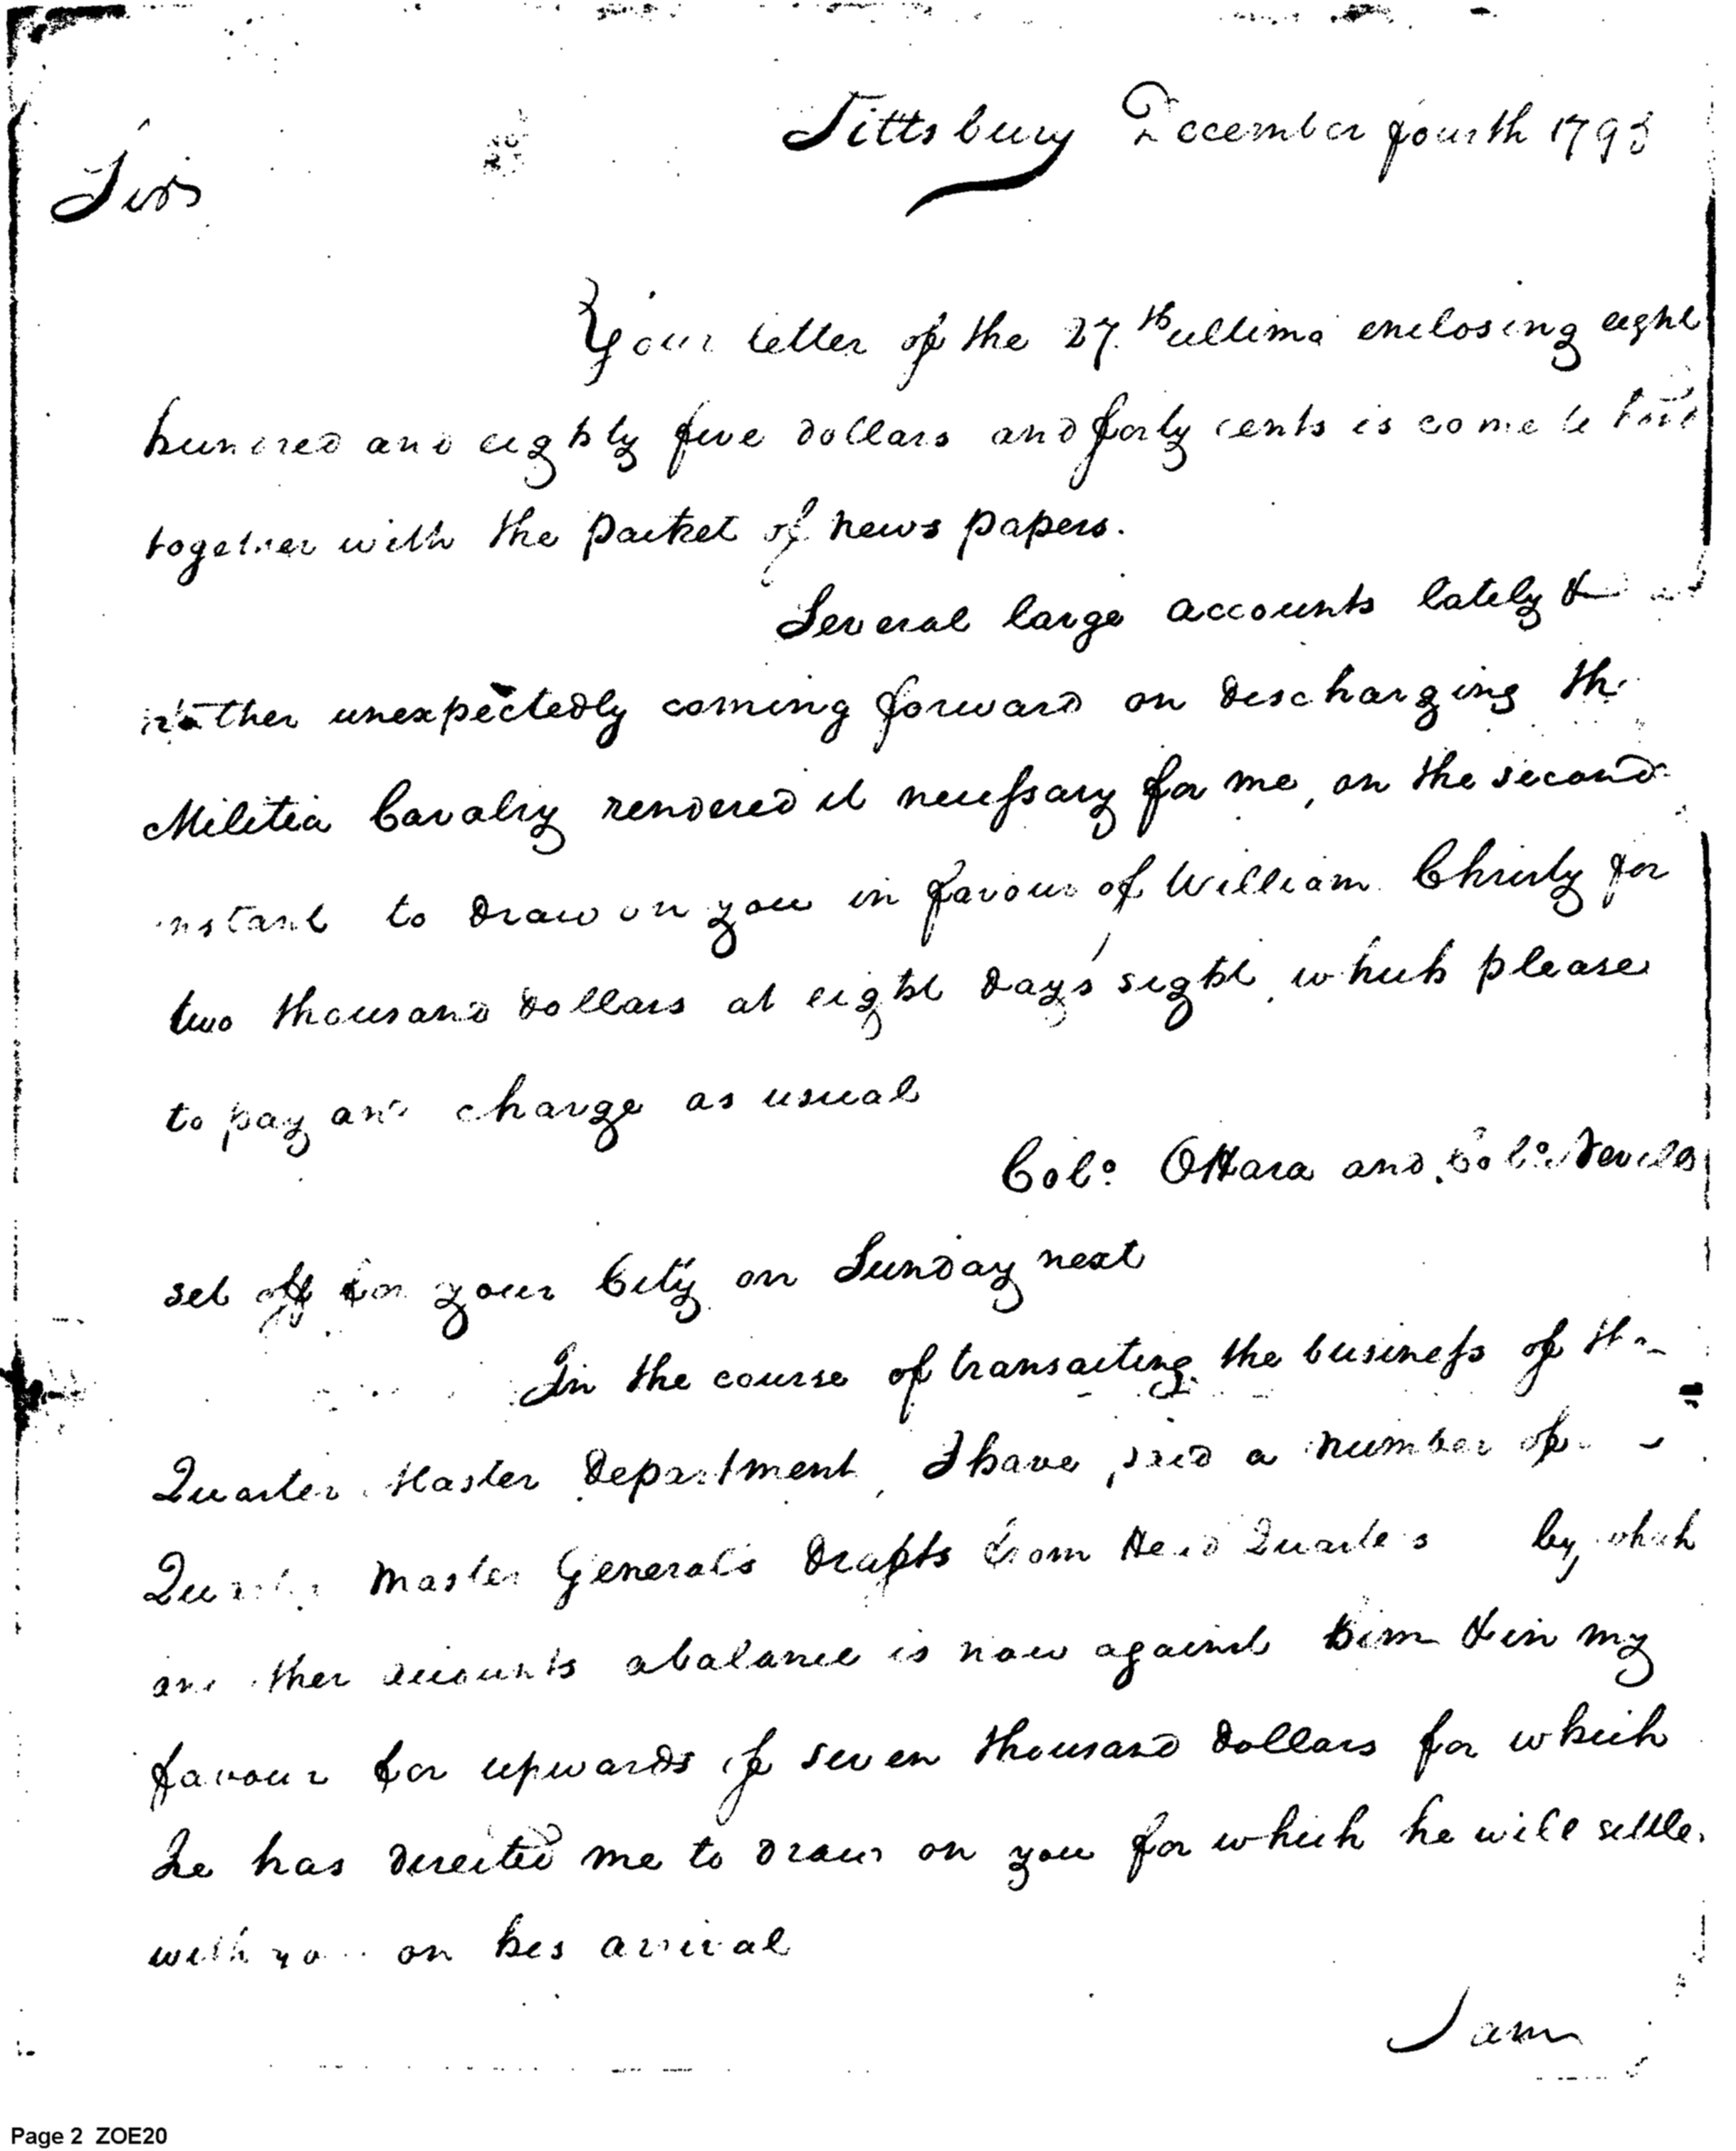 Pittsburg December fourth 1793
Sir
Your letter of the 27.th ultimo enclosing eight
hundred and eighty five dollars and forty cents is come to hand
together with the packet of news papers.
Several large accounts lately &
rather unexpectedly coming forward on discharging the
Militia Cavalry rendered it necessary for me, on the second
instant to draw on you in favour of William Christy for
two thousand dollars at eight day's sight, which please
to pay and charge as usual
Colo. OHara and Colo. Nevill
set off for your City on Sunday next
In the course of transacting the business of the
Quarter Master Department, I have paid a number of
Quarter Master General's drafts from Head Quarters by which
and other accounts a balance is now against him & in my
favour for upwards of seven thousand dollars for which
he has directed me to draw on you for which he will settle
with you on his arrival
I am
Page 2 ZOE20